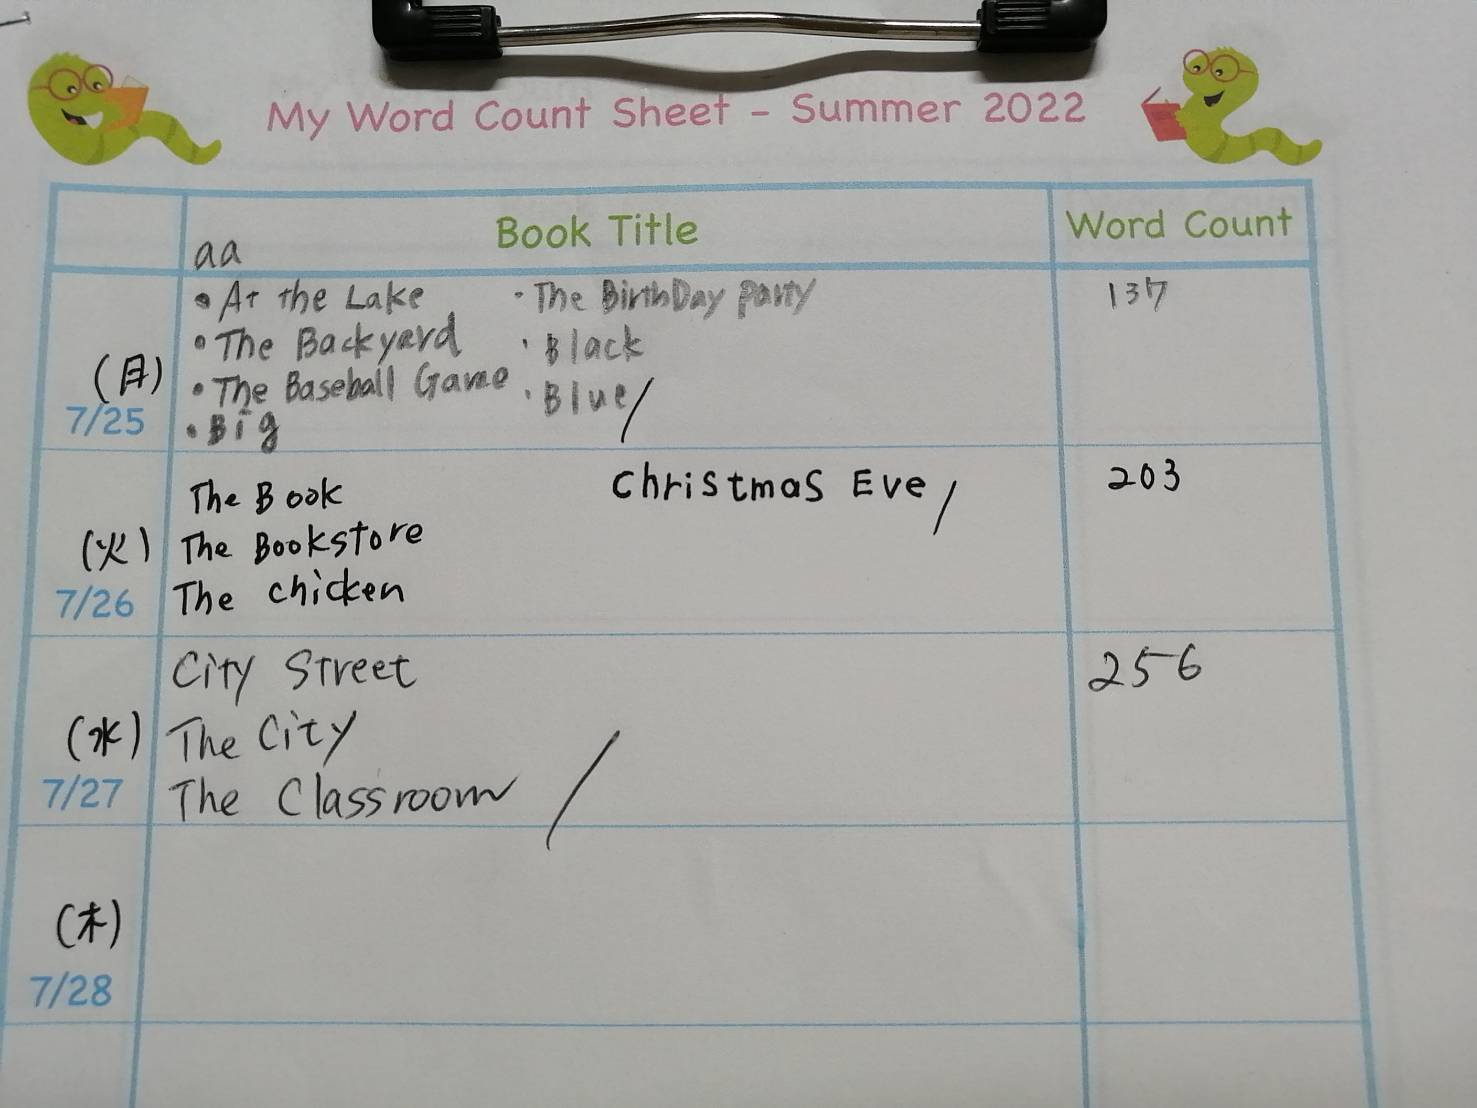 My Word Count Sheet - Summer 2022
Book Title
Word Count
aa
• At the Lake
• The Backyard
• The Baseball Game
• Big
• The BirthDay Party
• Black
• Blue/
137
(月)
7/25
The Book
The Bookstore
The chicken
Christmas Eve/
203
(火)
7/26
City Street
The City
The Classroom /
256
(水)
7/27
(木)
7/28